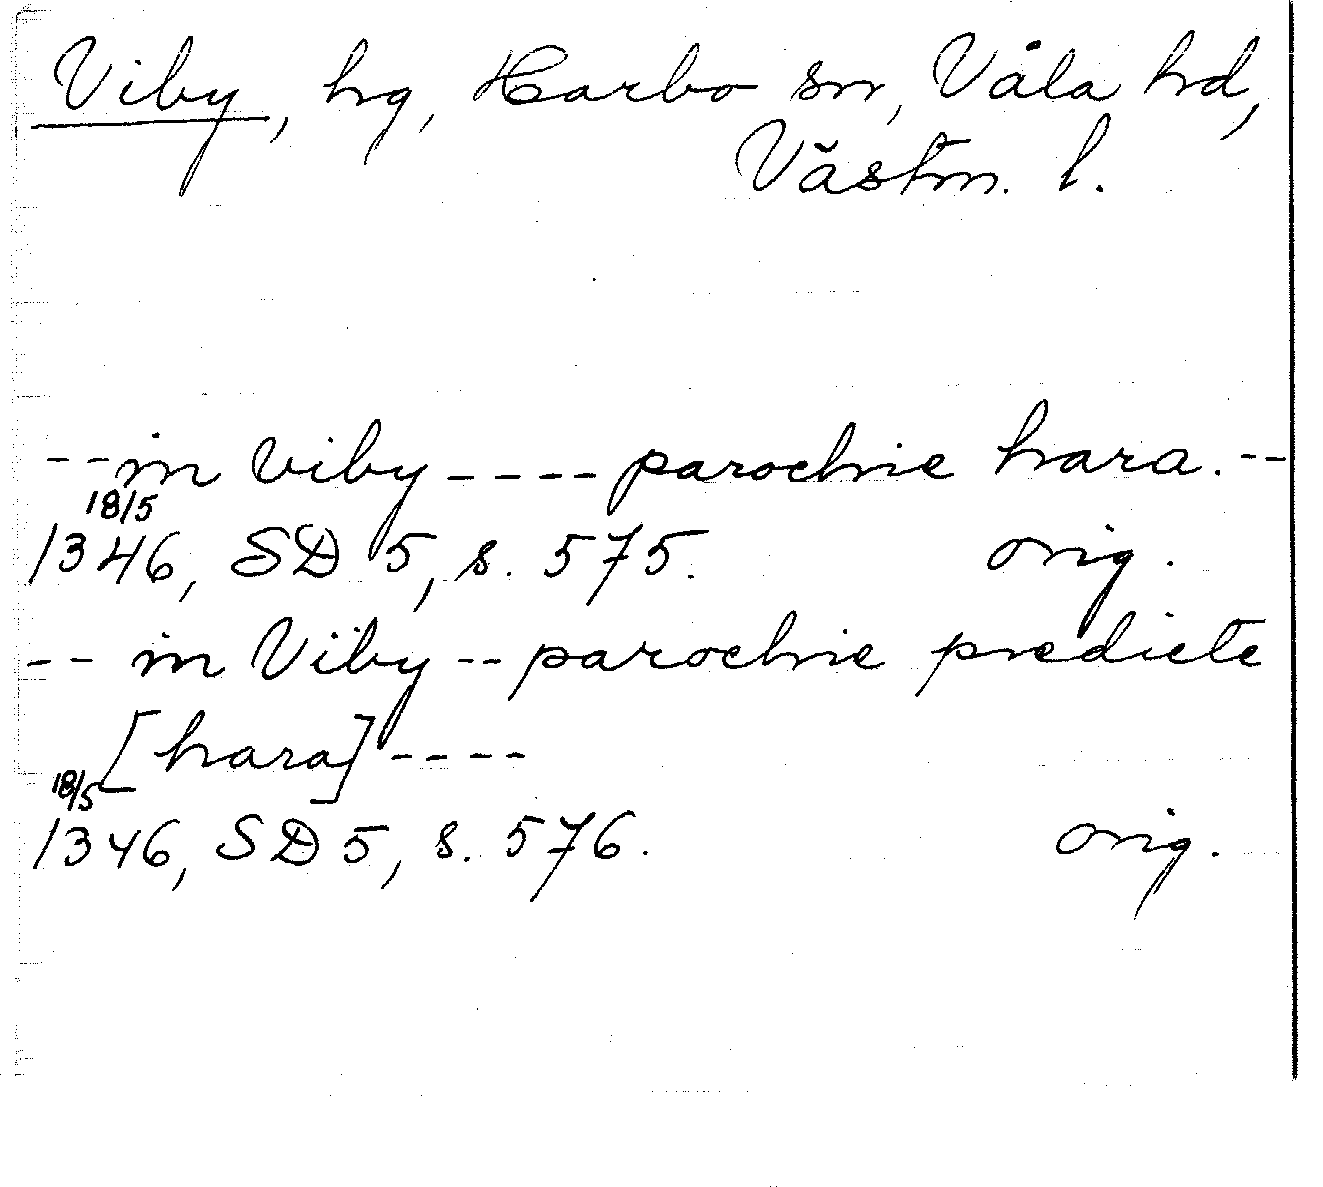 Viby, hg, Harbo sn, Våla hd,
Västm. l.
--in viby ---- parochie hara.--
18/5
1346, SD 5, s. 575. orig.
-- in Viby -- parochie predicte
[hara] ----
18/5
1346, SD 5, s. 576. orig.